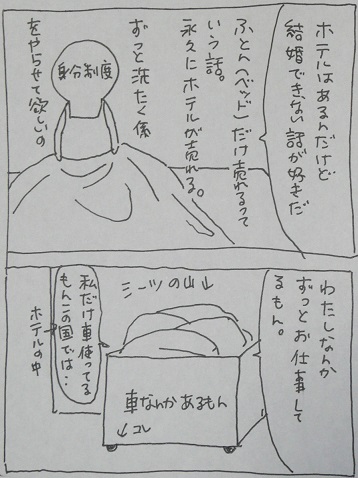 ホテルはあるんだけど
結婚できない話が好きだ
ふとん(ベッド)だけ売れるって
いう話。
永久にホテルが売れる。
ずっと洗たく係
をやらせて欲しいの
身分制度
わたしなんか
ずっとお仕事して
るもん。
シーツの山↓
車なんかあるもん
↓コレ
私だけ車使ってる
もんこの国では・・
ホテルの中